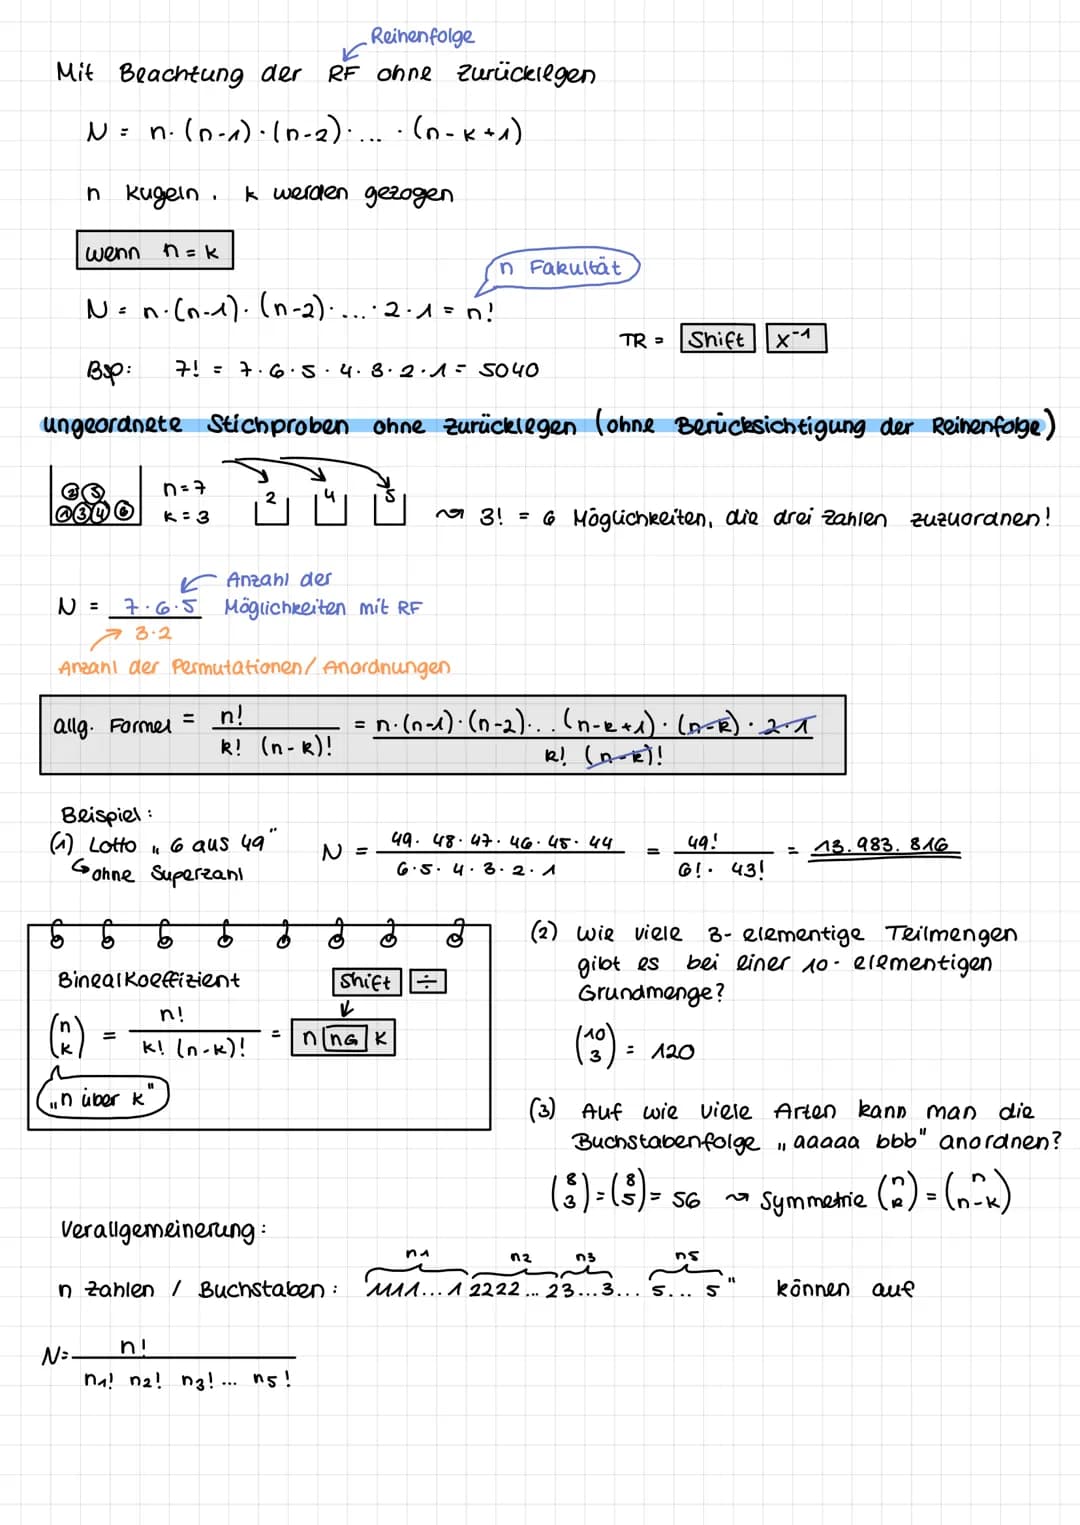 Reihenfolge
Mit Beachtung der RF ohne Zurücklegen
N = n·(n-1)·(n-2)·...·(n-k+1)
n Kugeln, k werden gezogen
wenn n=k
n Fakultät
N = n·(n-1)·(n-2)·...·2·1 = n!
TR = Shift x⁻¹
Bsp: 7! = 7·6·5·4·3·2·1 = 5040
ungeordnete Stichproben ohne zurücklegen (ohne Berücksichtigung der Reihenfolge)
n=7 2 4 5
k=3 ⇝ 3! = 6 Möglichkeiten, die drei Zahlen zuzuordnen!
Anzahl der
N = 7·6·5 Möglichkeiten mit RF
3·2
Anzahl der Permutationen/Anordnungen
allg. Formel = n! / k! (n-k)! = n·(n-1)·(n-2)·...(n-k+1)·(n-k)·2·1 / k! (n-k)!
Beispiel:
(1) Lotto „6 aus 49" N = 49·48·47·46·45·44 / 6·5·4·3·2·1 = 49! / 6!·43! = 13.983.816
↳ohne Superzahl
Binealkoeffizient Shift ÷
(n k) = n! / k! (n-k)! = n nG k
„n über k"
(2) wie viele 3-elementige Teilmengen
gibt es bei einer 10-elementigen
Grundmenge?
(10 3) = 120
(3) Auf wie viele Arten kann man die
Buchstabenfolge „aaaaa bbb" anordnen?
(8 3) = (8 5) = 56 ⇝ Symmetrie (n k) = (n n-k)
Verallgemeinerung:
n1 n2 n3 n5
n Zahlen / Buchstaben: 1111...1 2222...23...3...5...5" können auf
N = n! / n1! n2! n3! ... n5!